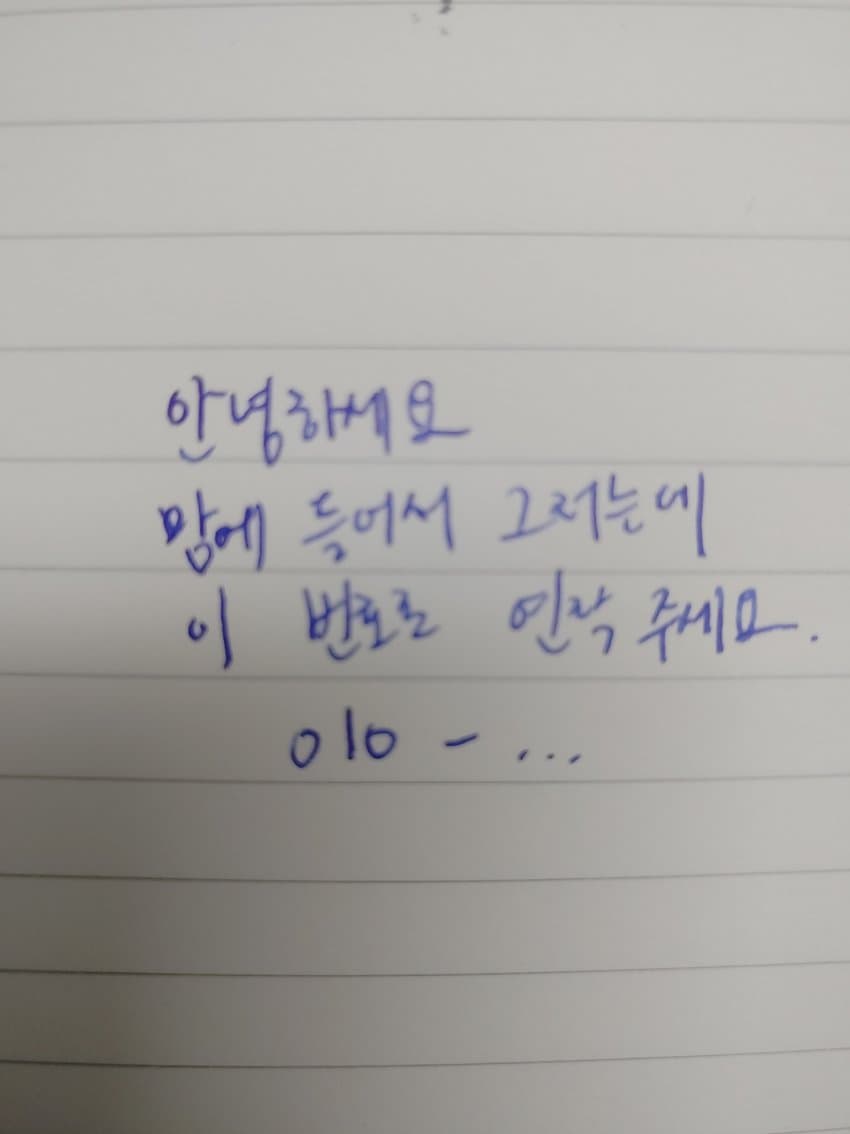 안녕하세요
맘에 들어서 그러는데
이 번호로 연락 주세요.
010 - ...